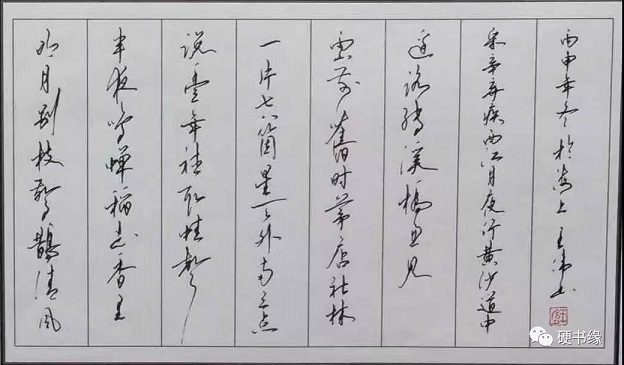 明月别枝惊鹊清风
半夜鸣蝉稻花香里
说豐年听取蛙聲
一片七八箇星天外两三点
雨山前舊时茅店社林
边路转溪橋忽见
宋辛弃疾西江月夜行黄沙道中
丙申年冬於海上王伟书
硬书缘